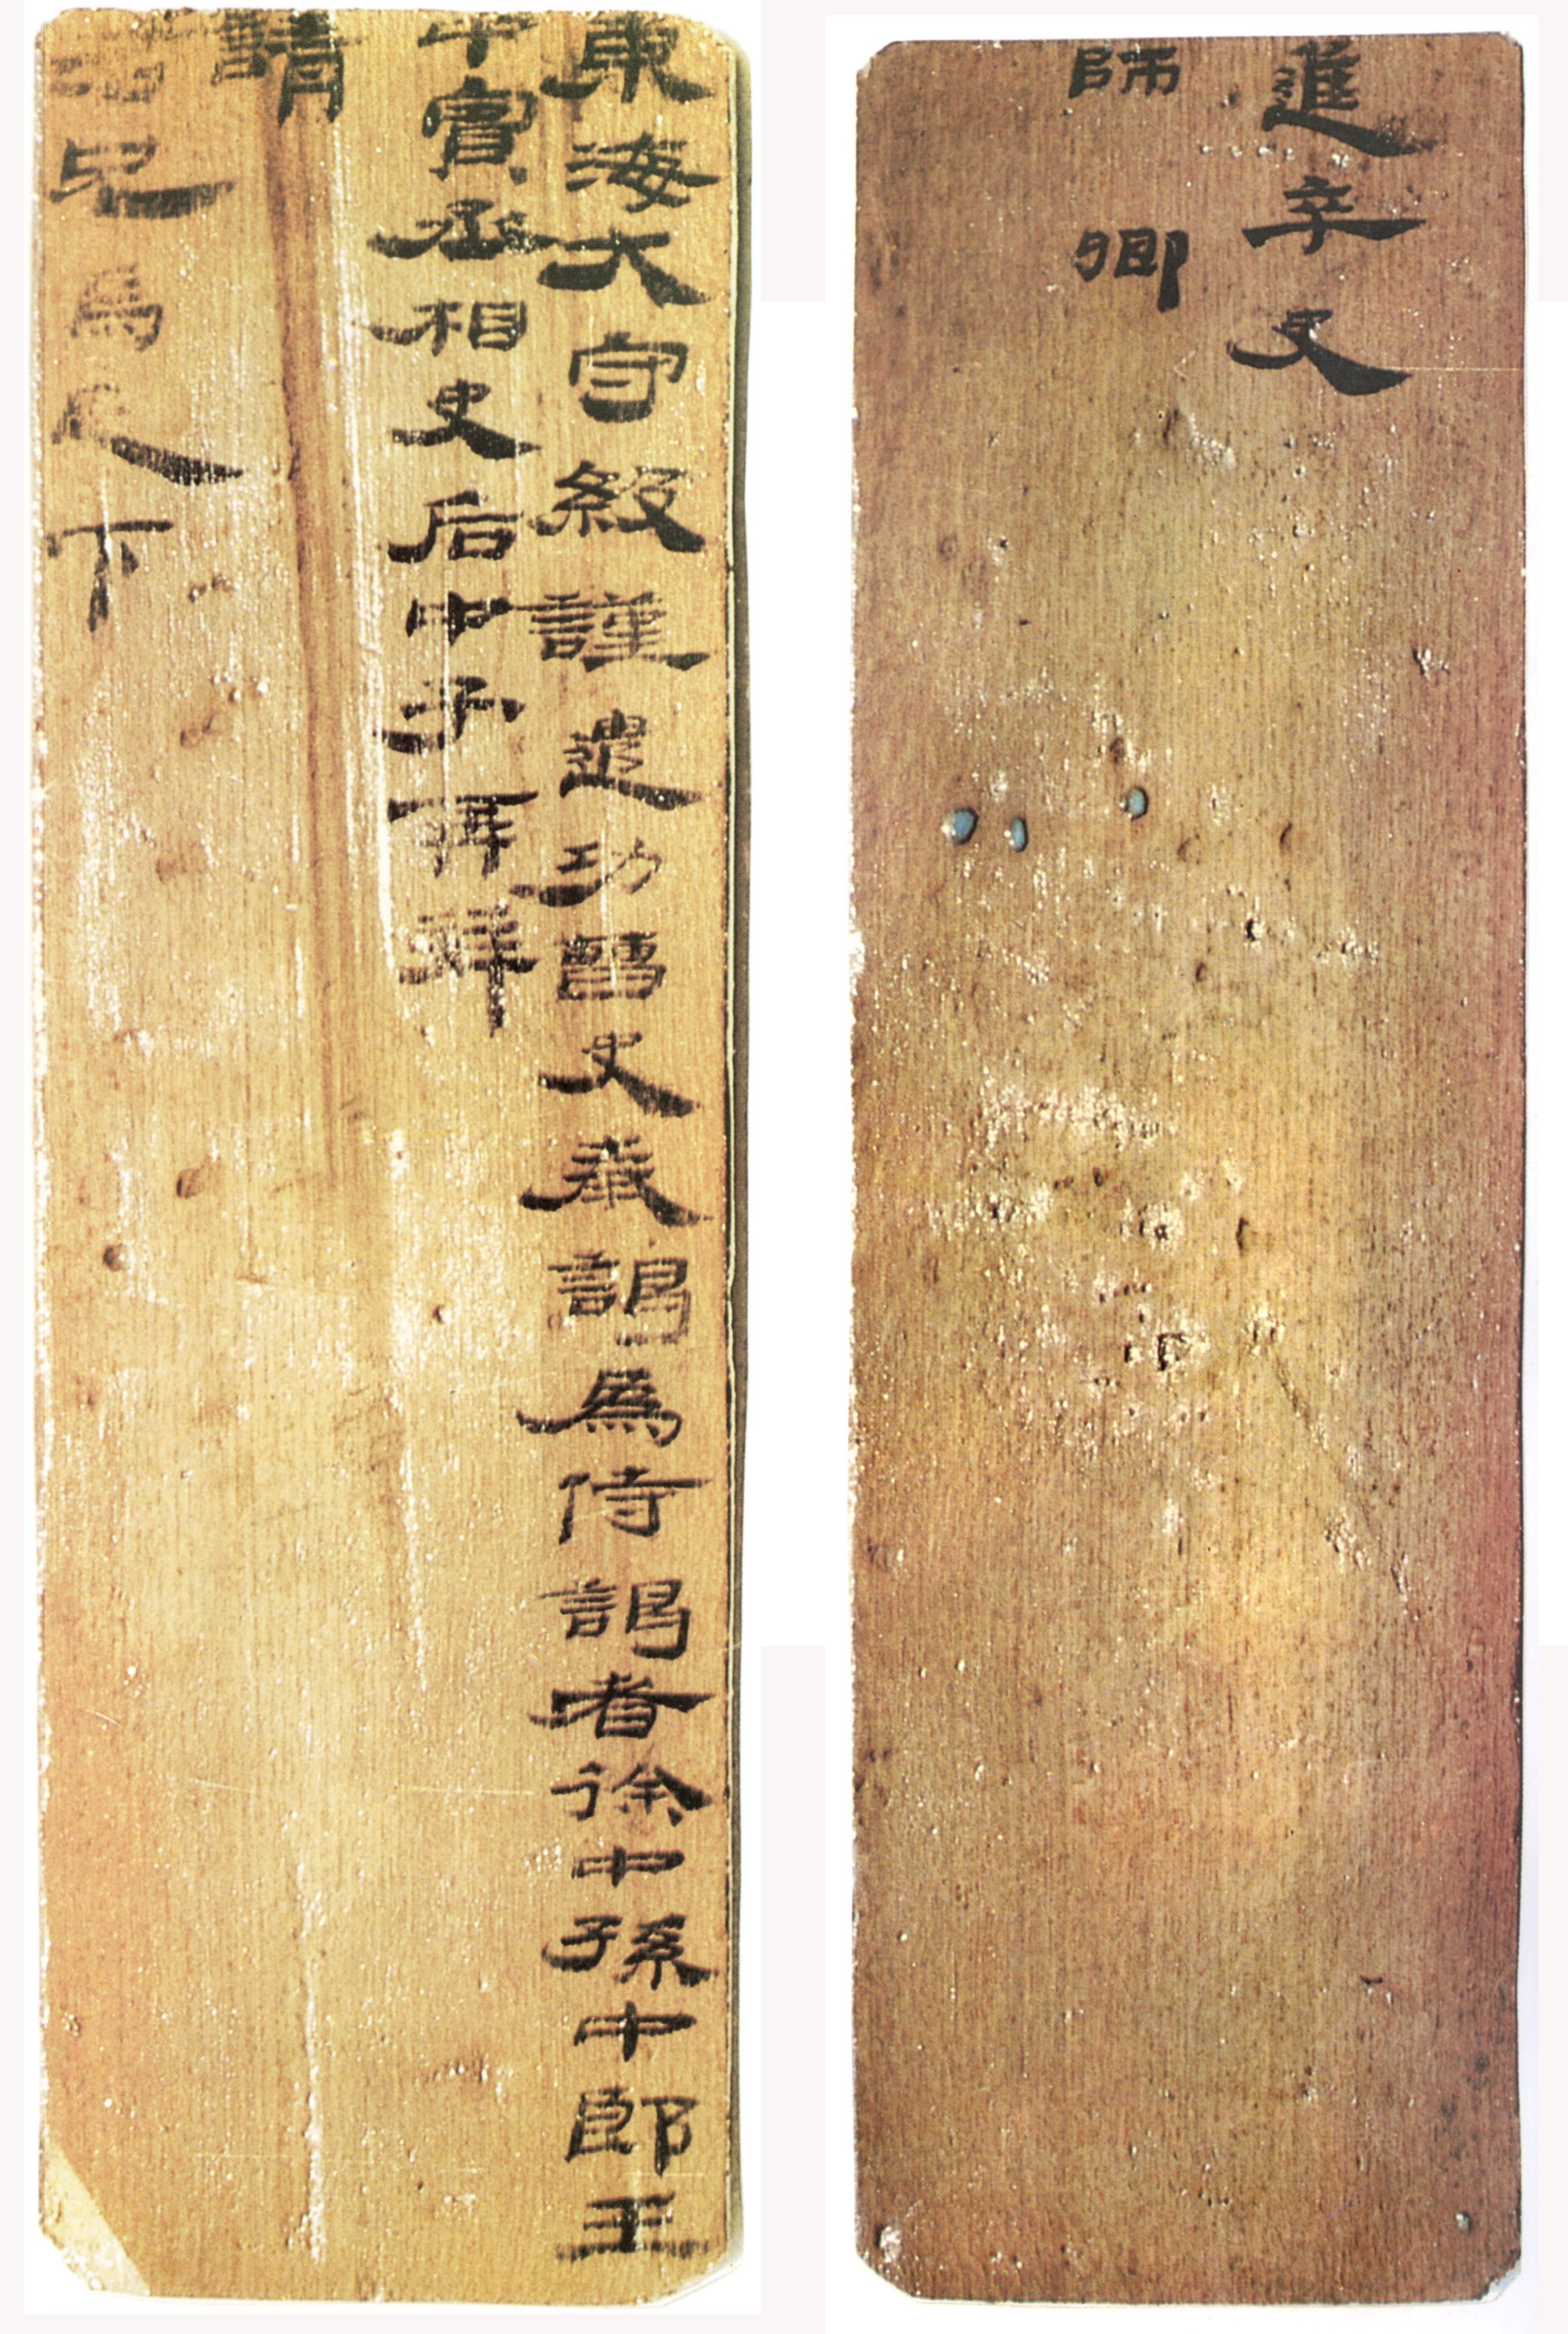 東海大守級謹遣功曹史奉謁為侍謁者徐中孫中郎王
中賓丞相史后中子再拜
請
君兄馬足下
進卒史
師卿